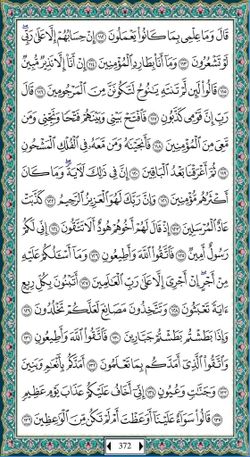 قَالَ وَمَا عِلْمِي بِمَا كَانُوا۟ يَعْمَلُونَ ١١٢ إِنْ حِسَابُهُمْ إِلَّا عَلَىٰ رَبِّي ۖ
لَوْ تَشْعُرُونَ ١١٣ وَمَآ أَنَا۠ بِطَارِدِ ٱلْمُؤْمِنِينَ ١١٤ إِنْ أَنَا۠ إِلَّا نَذِيرٌ مُّبِينٌ
١١٥ قَالُوا۟ لَئِن لَّمْ تَنتَهِ يَـٰنُوحُ لَتَكُونَنَّ مِنَ ٱلْمَرْجُومِينَ ١١٦ قَالَ
رَبِّ إِنَّ قَوْمِى كَذَّبُونِ ١١٧ فَٱفْتَحْ بَيْنِى وَبَيْنَهُمْ فَتْحًا وَنَجِّنِى وَمَن
مَّعِىَ مِنَ ٱلْمُؤْمِنِينَ ١١٨ فَأَنجَيْنَـٰهُ وَمَن مَّعَهُۥ فِى ٱلْفُلْكِ ٱلْمَشْحُونِ
١١٩ ثُمَّ أَغْرَقْنَا بَعْدُ ٱلْبَاقِينَ ١٢٠ إِنَّ فِى ذَٰلِكَ لَـَٔايَةً ۖ وَمَا كَانَ
أَكْثَرُهُم مُّؤْمِنِينَ ١٢١ وَإِنَّ رَبَّكَ لَهُوَ ٱلْعَزِيزُ ٱلرَّحِيمُ ١٢٢ كَذَّبَتْ
عَادٌ ٱلْمُرْسَلِينَ ١٢٣ إِذْ قَالَ لَهُمْ أَخُوهُمْ هُودٌ أَلَا تَتَّقُونَ ١٢٤ إِنِّى لَكُمْ
رَسُولٌ أَمِينٌ ١٢٥ فَٱتَّقُوا۟ ٱللَّهَ وَأَطِيعُونِ ١٢٦ وَمَآ أَسْـَٔلُكُمْ عَلَيْهِ
مِنْ أَجْرٍ ۖ إِنْ أَجْرِىَ إِلَّا عَلَىٰ رَبِّ ٱلْعَـٰلَمِينَ ١٢٧ أَتَبْنُونَ بِكُلِّ رِيعٍ
ءَايَةً تَعْبَثُونَ ١٢٨ وَتَتَّخِذُونَ مَصَانِعَ لَعَلَّكُمْ تَخْلُدُونَ ١٢٩
وَإِذَا بَطَشْتُم بَطَشْتُمْ جَبَّارِينَ ١٣٠ فَٱتَّقُوا۟ ٱللَّهَ وَأَطِيعُونِ ١٣١
وَٱتَّقُوا۟ ٱلَّذِىٓ أَمَدَّكُم بِمَا تَعْلَمُونَ ١٣٢ أَمَدَّكُم بِأَنْعَـٰمٍ وَبَنِينَ
١٣٣ وَجَنَّـٰتٍ وَعُيُونٍ ١٣٤ إِنِّىٓ أَخَافُ عَلَيْكُمْ عَذَابَ يَوْمٍ عَظِيمٍ
١٣٥ قَالُوا۟ سَوَآءٌ عَلَيْنَآ أَوَعَظْتَ أَمْ لَمْ تَكُن مِّنَ ٱلْوَٰعِظِينَ ١٣٦
372